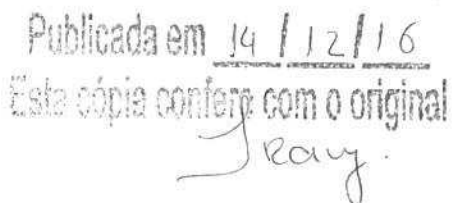 Publicada em 14/12/16
Esta cópia confere com o original